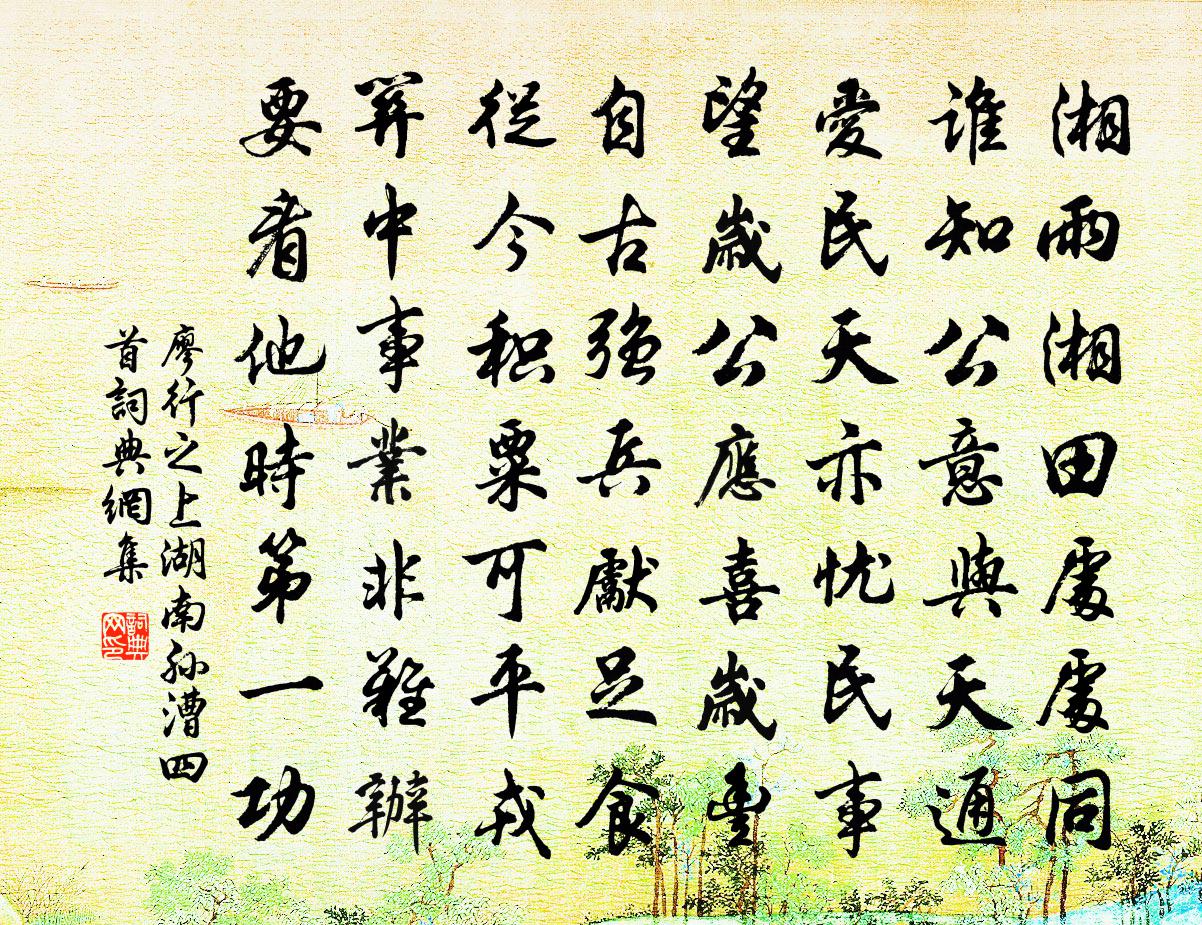 湘雨湘田處處同
誰知公意與天通
愛民天亦忧民事
望歲公應喜歲豊
自古强兵獻足食
從今积粟可平戎
筭中事業非難辦
要看他時第一功
廖行之上湖南孙漕四
首詞典網集
詞典网印